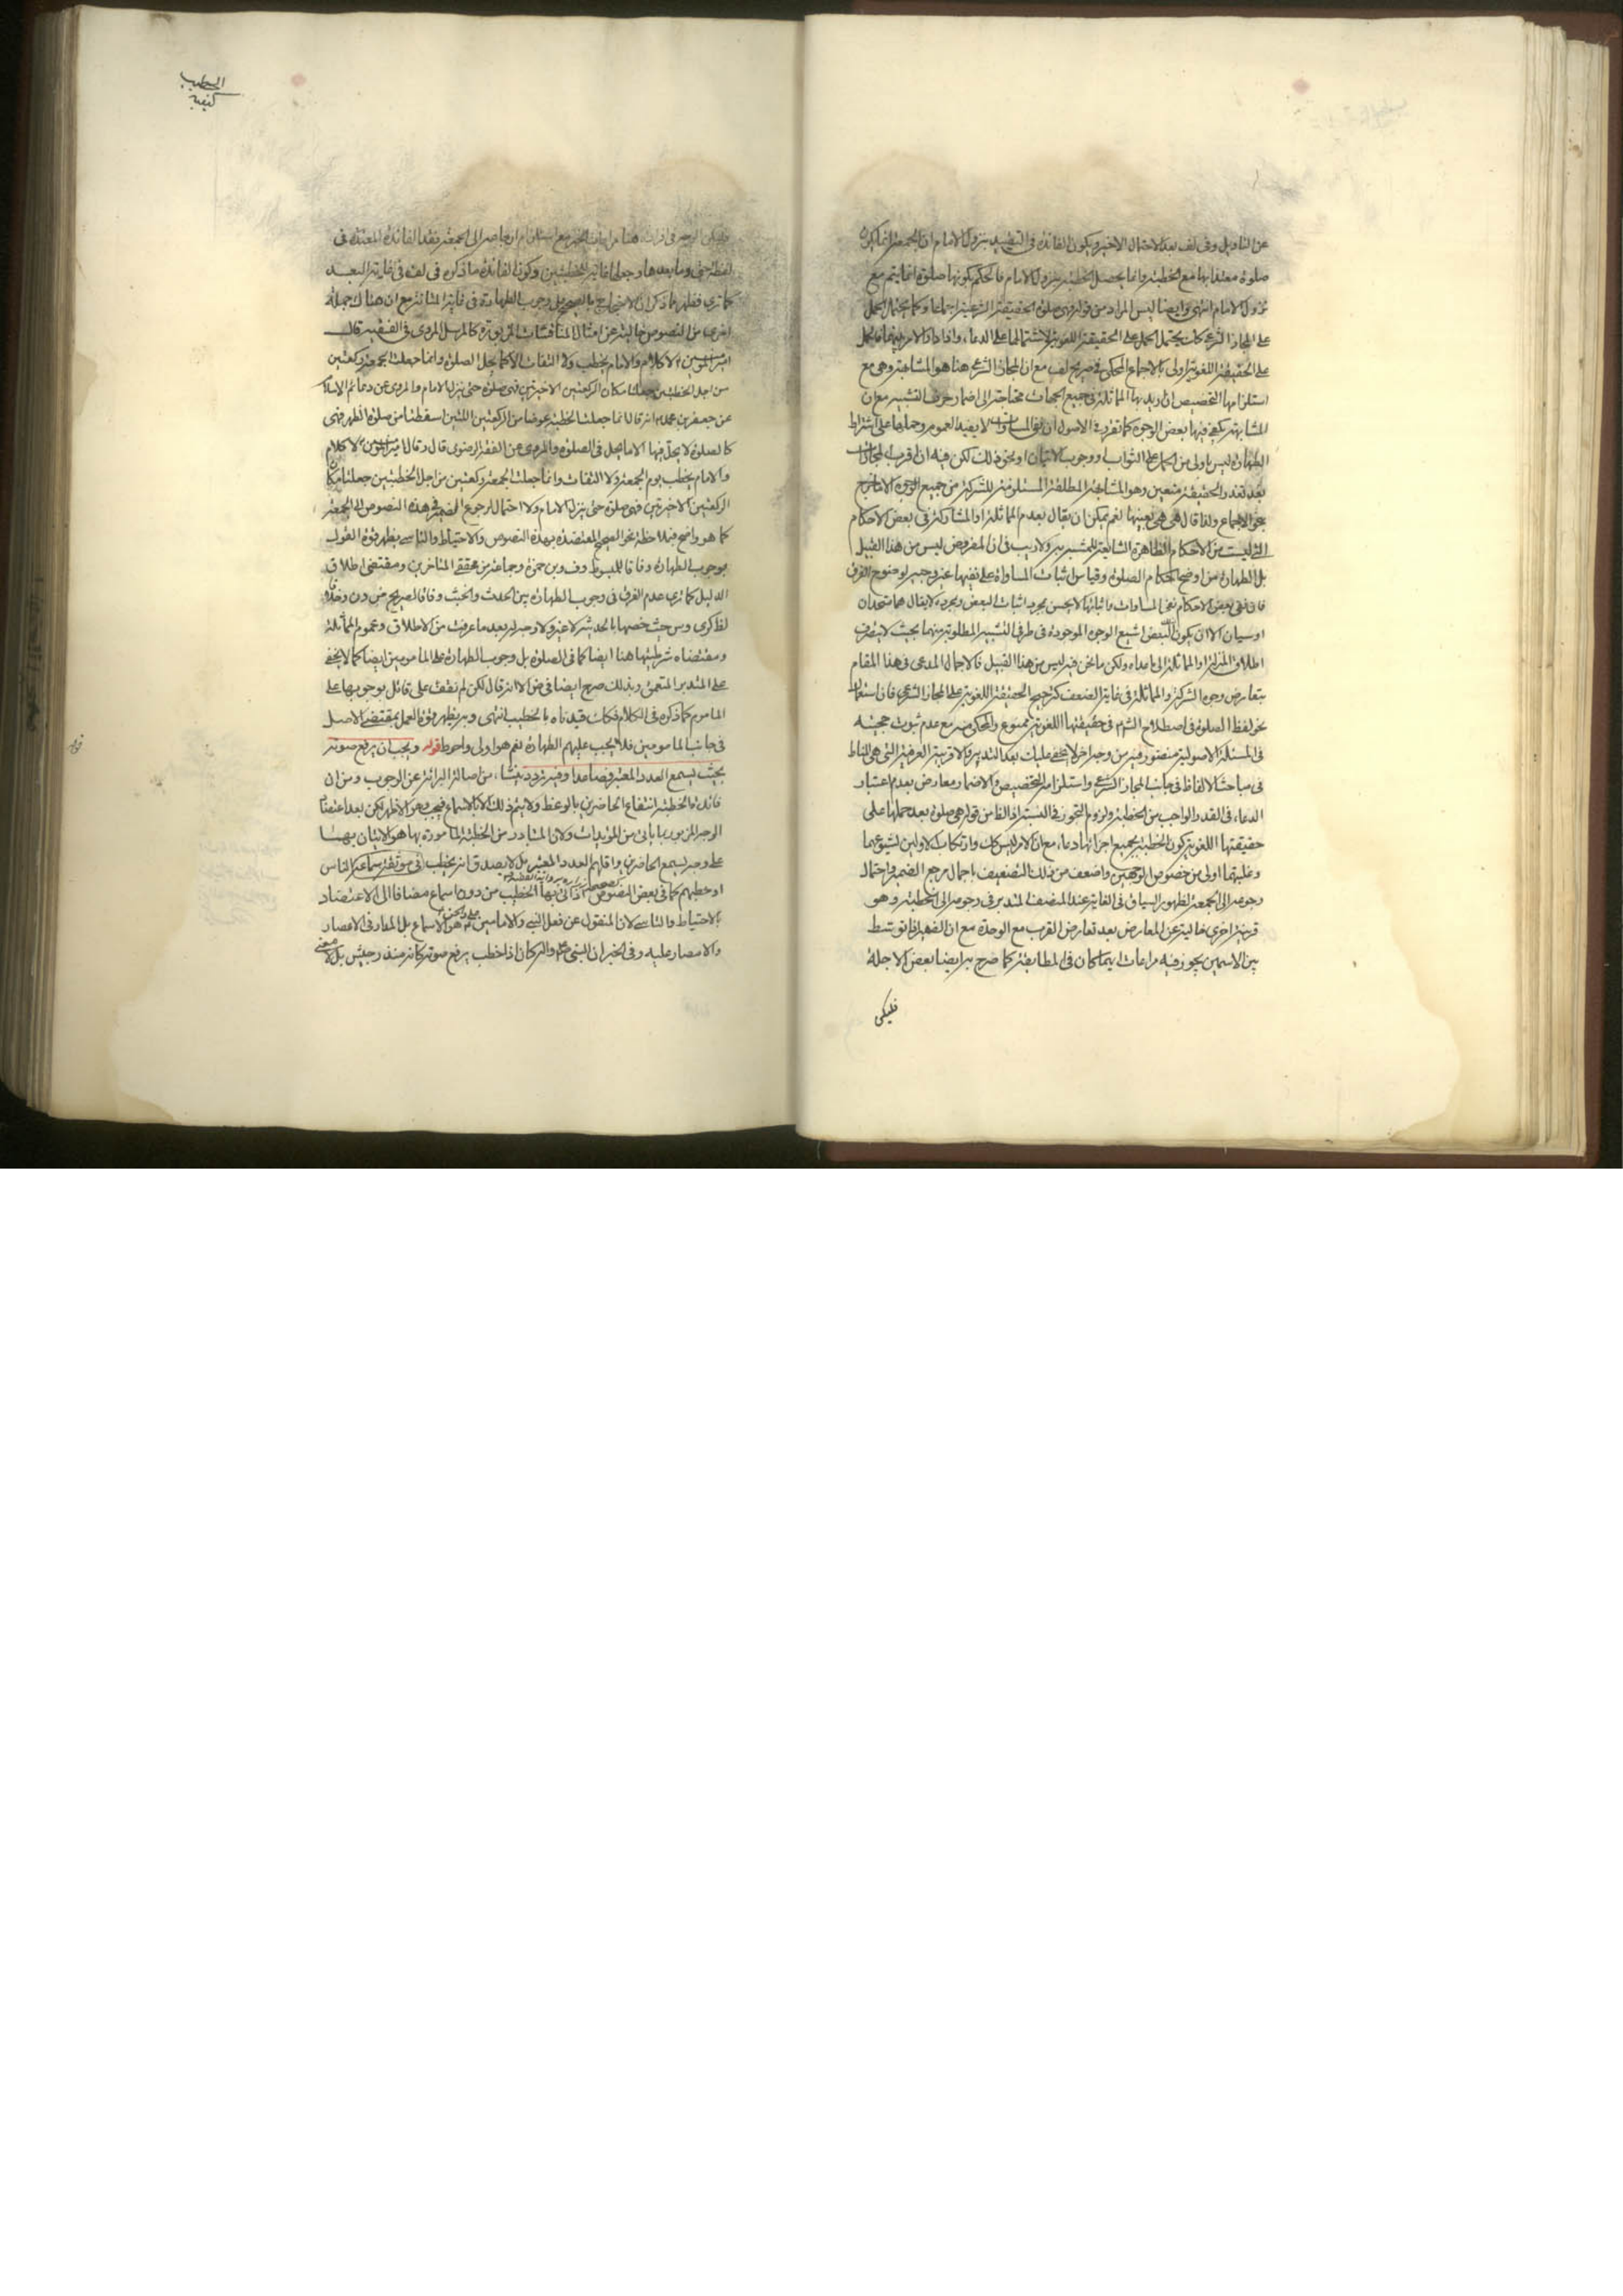 عن التاويل وفى لف بعد الاحتمال الاخير ويكون الفائدة فى التقييد بنزول الامام ان الجمعة انما يكون
صلوة معتدا بها مع الخطبة وانما يحصل الخطبة بنزول الامام فالحكم بكونها صلوة انما يتم مع
نزول الامام انتهى وايضا ليس المراد من قوله فهى صلوة الحقيقة الشرعية اجماعا وكما يحتمل الحمل
على المجاز الشرعى كك يحتمل الحمل على الحقيقة اللغوية لاشتمالها على الدعاء واذا دار الامر بينهما فالحمل
على الحقيقة اللغوية اولى بالاجماع المحكى فى صريح لف مع ان المجاز الشرعى هنا هو المشابهة وهى مع
استلزامها التخصيص ان اريد بها المماثلة فى جميع الجهات محتاجة الى اضمار حرف التشبيه مع ان
المشابهة يكفى فيها بعض الوجوه كما تقرر فى الاصول ان نفى المساوات لا يفيد العموم وحملها على اشتراط
الطهارة ليس باولى من الحمل على الثواب او وجوب الاتيان او نحو ذلك لكن فيه ان اقرب المجازات
بعد تعذر الحقيقة متعين وهو المشابهة المطلقة المستلزمة للشركة من جميع الوجوه الا ما خرج
بنحو الاجماع ولذا قال هى هى بعينها نعم يمكن ان يقال بعدم المماثلة او المشاركة فى بعض الاحكام
التى ليست من الاحكام الظاهرة الشايعة للمشبه به ولا ريب فى ان المفروض ليس من هذا القبيل
بل الطهارة من اوضح احكام الصلوة وقياس اثبات المساواة على نفيها غير وجيه لوضوح الفرق
فان نفى بعض الاحكام نفى المساوات واثباتها لا يحسن بمجرد اثبات البعض وبمجرده لا يقال هما متحدان
او سيان الا ان يكون البعض اشيع الوجوه الموجودة فى طرفى التشبيه المطلوبة منهما بحيث لا ينصرف
اطلاق المنزلة او المماثلة الى ما عداه ولكن ما نحن فيه ليس من هذا القبيل فالاجمال المدعى فى هذا المقام
بتعارض وجوه الشركة والمماثلة فى غاية الضعف كترجيح الحقيقة اللغوية على المجاز الشرعى فان استعمال
نحو لفظ الصلوة فى اصطلاح الشرع فى حقيقتها اللغوية ممنوع والمحكى صريح مع عدم ثبوت حجيته
فى المسئلة الاصولية منصور فيه من وجه اخر لا يخفى عليك بعد التدبر والقرينة العرفية التى هى المناط
فى مباحث الالفاظ فى جانب المجاز الشرعى واستلزامه للتخصيص والاضمار معارض بعدم اعتبار
الدعاء فى القدر الواجب من الخطبة ولزوم التجوز فى النسبة الظاهر من قوله هى صلوة بعد حملها على
حقيقتها اللغوية بكون الخطبة بجميع اجزائها دعاء مع ان الامر ليس كك وارتكاب الاولين لشيوعهما
وغلبتهما اولى من خصوص الوجهين واضعف من ذلك التضعيف باجمال مرجع الضمير واحتمال
رجوعه الى الجمعة لظهور السياق فى الغاية عند المنصف المتدبر فى رجوعه الى الخطبة وهو
قرينة اخرى خالية عن المعارض بعد تعارض القرب مع الوحدة مع ان الضمير اذا توسط
بين الاسمين يجوز فيه مراعات ايهما كان فى المطابقة كما صرح به ايضا بعض الاجلة
فليكن
الخطيب
كيفية
فليكن الوجه فى افراده هنا مراعات الخبر مع استلزام ارجاعه الى الجمعة فقد الفائدة المعتدة فى
لفظة حتى وما بعدها وجعلها غاية للخطبتين وكون الفائدة ما ذكره فى لف فى غاية البعد
كما ترى فظهر بما ذكر ان الاحتجاج بالصحيح على وجوب الطهارة فى غاية المتانة مع ان هناك جملة
اخرى من النصوص خالية عن امثال المناقشات المزبورة كالمرسل المروى فى الفقيه قال
امير المؤمنين ع لا كلام والامام يخطب ولا التفات الا كما يحل فى الصلوة وانما جعلت الجمعة ركعتين
من اجل الخطبتين جعلتا مكان الركعتين الاخيرتين فهى صلوة حتى ينزل الامام والمروى عن دعائم الاسلام
عن جعفر بن محمد ع انه قال انما جعلت الخطبة عوضا من الركعتين اللتين اسقطتا من صلوة الظهر فهى
كالصلوة لا يحل فيها الا ما يحل فى الصلوة والمروى عن الفقه الرضوى قال وقال امير المؤمنين ع لا كلام
والامام يخطب يوم الجمعة ولا التفات وانما جعلت الجمعة ركعتين من اجل الخطبتين جعلتا مكان
الركعتين الاخيرتين فهى صلوة حتى ينزل الامام ولا احتمال لرجوع الضمير فى هذه النصوص الى الجمعة
كما هو واضح فبملاحظة نحو الصحيح المعتضدة بهذه النصوص والاحتياط والتاسى يظهر قوة القول
بوجوب الطهارة وفاقا للمبسوط وف وبن حمزة وجماعة من محققى المتاخرين ومقتضى اطلاق
الدليل كما ترى عدم الفرق فى وجوب الطهارة بين الحدث والخبث وفاقا لصريح ض ون وخلافا
لظ كرى وس حيث خصها بالحدثية لا غير ولا وجه له بعد ما عرفت من الاطلاق وعموم المماثلة
ومقتضاه شرطيتها هنا ايضا كما فى الصلوة بل وجوب الطهارة على المامومين ايضا كما لا يخفى
على المتدبر المتعمق وبذلك صرح ايضا فى ض الا انه قال لكن لم نقف على قائل بوجوبها على
الماموم كما ذكره فى الكلام فكانت قيدناه بالخطيب انتهى وبه يظهر قوة العمل بمقتضى الاصل
فى جانب المامومين فلا يجب عليهم الطهارة نعم هو اولى واحوط قوله ويجب ان يرفع صوته
بحيث يسمع العدد المعتبر فصاعدا وفيه تردد ينشأ من اصالة البرائة عن الوجوب ومن ان
فائدة الخطبة انتفاع الحاضرين بالوعظ ولا يتم ذلك الا بالاسماع فيجب وهو الاظهر لكن بعد اعتضاد
الوجه المزبور بما ياتى من المؤيدات ولان المتبادر من الخطبة المامورة بها هو الاتيان بها
على وجه يسمع الحاضرين واقلهم العدد المعتبر بل لا يصدق انه يخطب فى موثقة سماعة الناس
او خطبهم كما فى بعض النصوص اذا اتى بها الخطيب من دون اسماع مضافا الى الاعتضاد
بالاحتياط والتاسى لان المنقول عن فعل النبى والامامين على والحسن ع هو الاسماع بل المدار فى الاعصار
والامصار عليه وفى الخبر ان النبى صلى الله عليه واله كان اذا خطب يرفع صوته كانه منذر جيش بل لا معنى
قوله